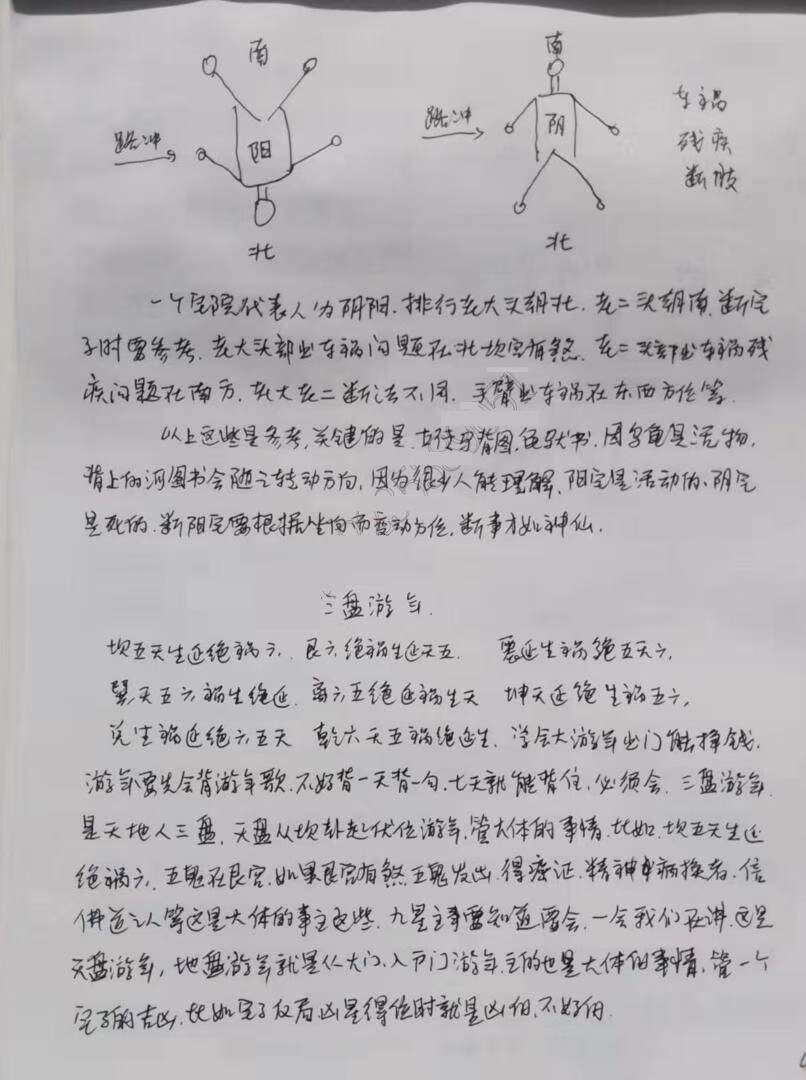 南 南
路冲 阳 路冲 阴 车祸
残疾
断肢
北 北
一个宅院代表人为阴阳，排行老大头朝北，老二头朝南，断宅
子时要参考，老大头部出车祸问题在北坎宫有煞，老二头部出车祸残
疾问题在南方，老大老二断法不同，手臂出车祸在东西方位等。
以上这些是参考，关键的是，背图，龟驮书，因为龟是活物，
背上的河图书会随之转动方向，因为很少人能理解，阳宅是活动的、阴宅
是死的，断阳宅要根据坐向而变动方位，断事才如神仙。
三盘游年
坎五天生延绝祸六、艮六绝祸生延天五 震延生祸绝五天六，
巽天五六祸生绝延、离六五绝延祸生天 坤天延绝生祸五六，
兑生祸延绝六五天 乾六天五祸绝延生，学会大游年出门能挣钱，
游年要先会背游年歌，不好背一天背一句，七天就能背住，必须会，三盘游年
是天地人三盘，天盘从坎卦起伏位游年，管大体的事情，比如，坎五天生延
绝祸六，五鬼在艮宫，如果艮宫有煞五鬼发凶，得癌证，精神病换者，信
佛道之人等这是大体的事主这些，九星主事要知道要会，一会我们在讲，这是
天盘游年，地盘游年就是从大门、入户门游年，主的也是大体的事情，管一个
宅子的吉凶，比如宅子反局凶星得位时就是凶的，不好的。